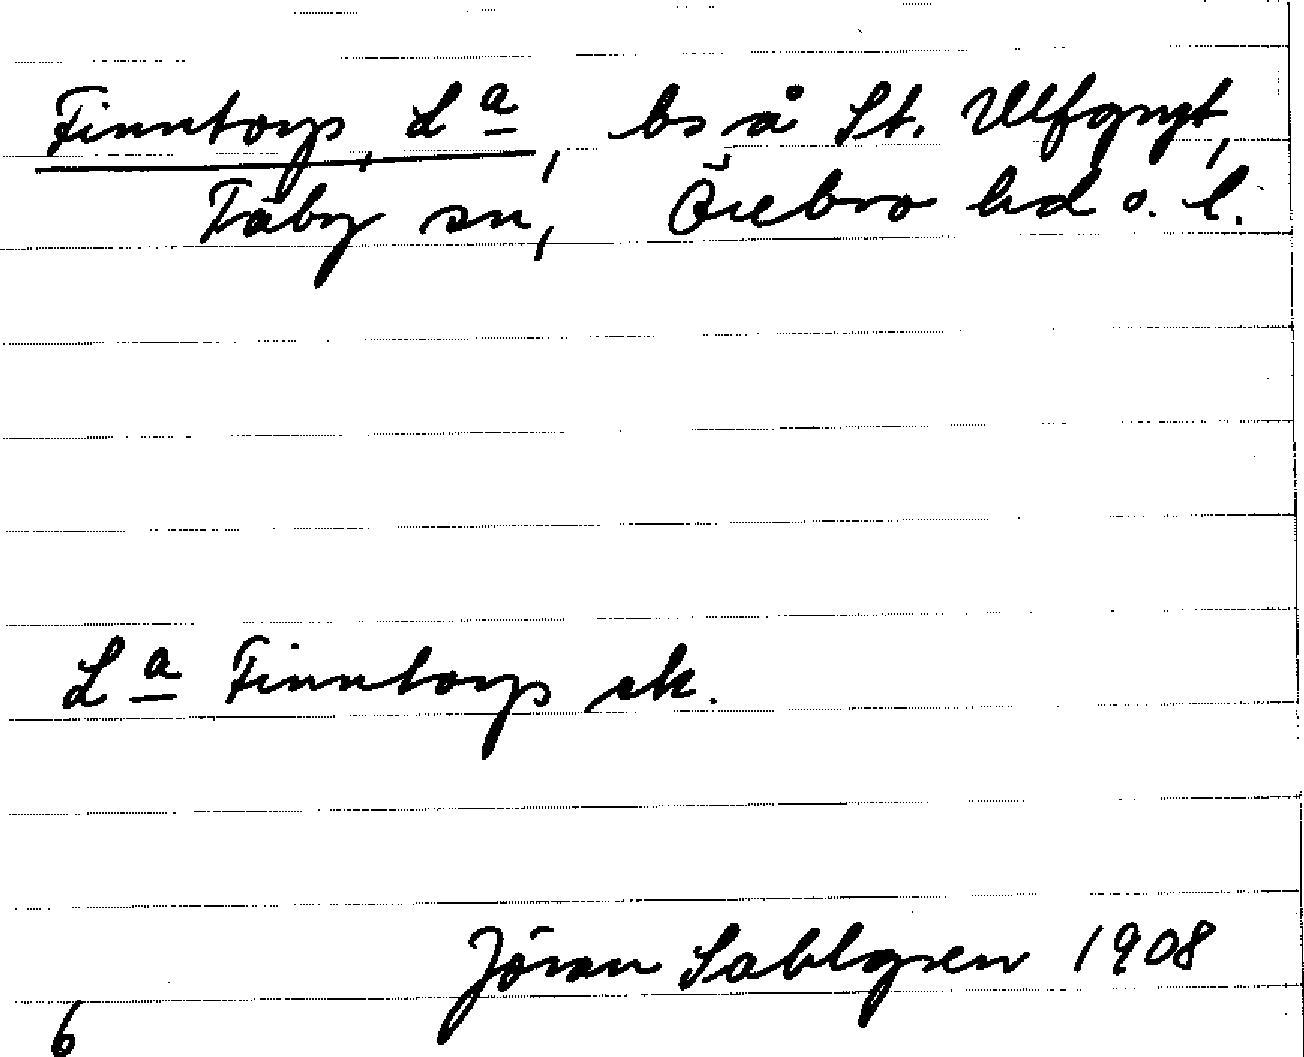 Finntorp, L<sup>a</sup>, bs å St. Ulfgryt,
Täby sn, Örebro hd o. l.
L<sup>a</sup> Finntorp ek.
Jöran Sahlgren 1908
6